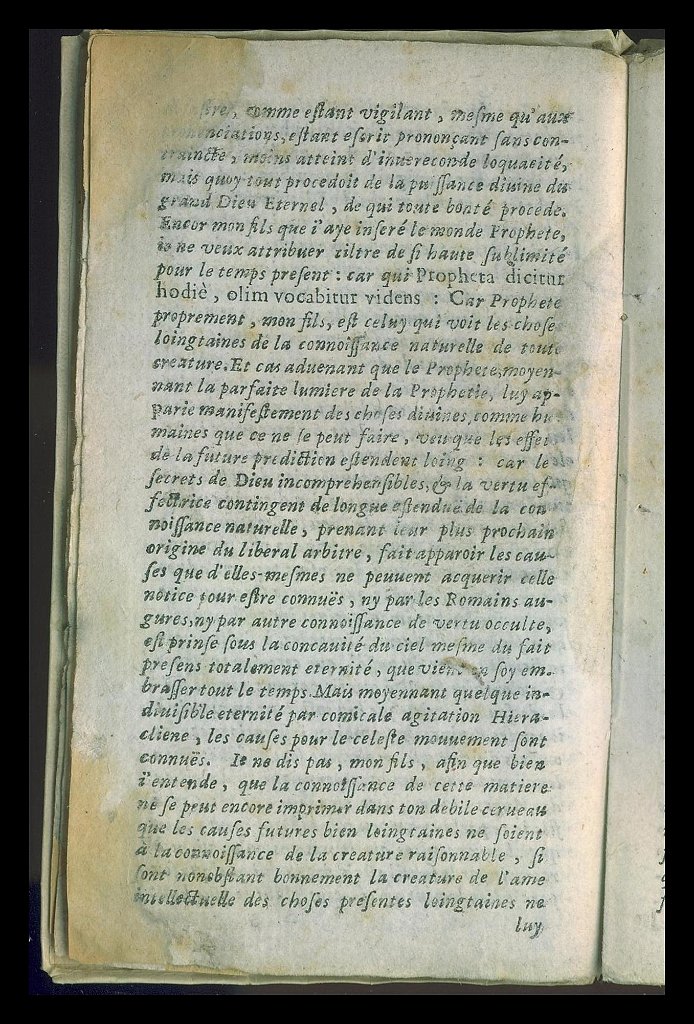 comme eſtant vigilant, meſme qu'aux
eſtant eſcrit prononçant ſans con-
traincte, moins atteint d'inuereconde loquacité,
mais quoy tout procedoit de la puiſſance diuine du
grand Dieu Eternel, de qui toute bonté procede.
Encor mon fils que i'aye inſeré le monde Prophete,
ie ne veux attribuer tiltre de ſi haute ſublimité
pour le temps preſent : car qui Propheta dicitur
hodiè, olim vocabitur videns : Car Prophete
proprement, mon fils, eſt celuy qui voit les choſe
loingtaines de la connoiſſance naturelle de toute
creature. Et cas aduenant que le Prophete, moyen-
nant la parfaite lumiere de la Prophetie, luy ap-
parie manifeſtement des choſes diuines, comme hu
maines que ce ne ſe peut faire, veu que les effet
de la future prediction eſtendent loing : car le
ſecrets de Dieu incomprehenſibles, & la vertu ef-
fectrice contingent de longue eſtenduë de la con
noiſſance naturelle, prenant leur plus prochain
origine du liberal arbitre, fait apparoir les cau-
ſes que d'elles-meſmes ne peuuent acquerir celle
notice pour eſtre connuës, ny par les Romains au-
gures, ny par autre connoiſſance de vertu occulte,
eſt prinſe ſous la concauité du ciel meſme du fait
preſens totalement eternité, que vient en ſoy em-
braſſer tout le temps. Mais moyennant quelque in-
diuiſible eternité par comicale agitation Hiera-
cliene, les cauſes pour le celeſte mouuement ſont
connuës. Ie ne dis pas, mon fils, afin que bien
i'entende, que la connoiſſance de cette matiere
ne ſe peut encore imprimer dans ton debile cerueau
que les cauſes futures bien loingtaines ne ſoient
à la connoiſſance de la creature raiſonnable, ſi
ſont nonobſtant bonnement la creature de l'ame
intellectuelle des choſes preſentes loingtaines ne
luy